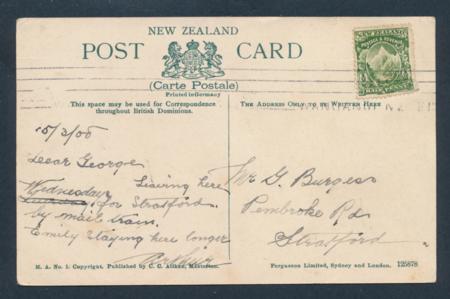 NEW ZEALAND
POST CARD
(Carte Postale)
Printed in Germany
This space may be used for Correspondence
throughout British Dominions.
THE ADDRESS ONLY TO BE WRITTEN HERE
NEW ZEALAND
POSTAGE & REVENUE
HALF PENNY
WANGANUI N.Z.
15/3/05
Dear George
Wednesday Leaving here
for Stratford
by mail train.
Emily staying here longer
Arthur
Mr G. Burgess
Pembroke Rd
Stratford
M. A. No. 1. Copyright. Published by C. C. Aitken, Masterton.
Fergusson Limited, Sydney and London. 125878